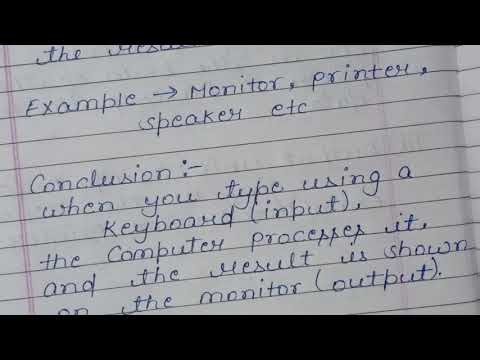 the resul
Example → Monitor, printer,
speaker etc
Conclusion:-
when you type using a
Keyboard (input),
the Computer processes it,
and the result is shown
on the monitor (output).